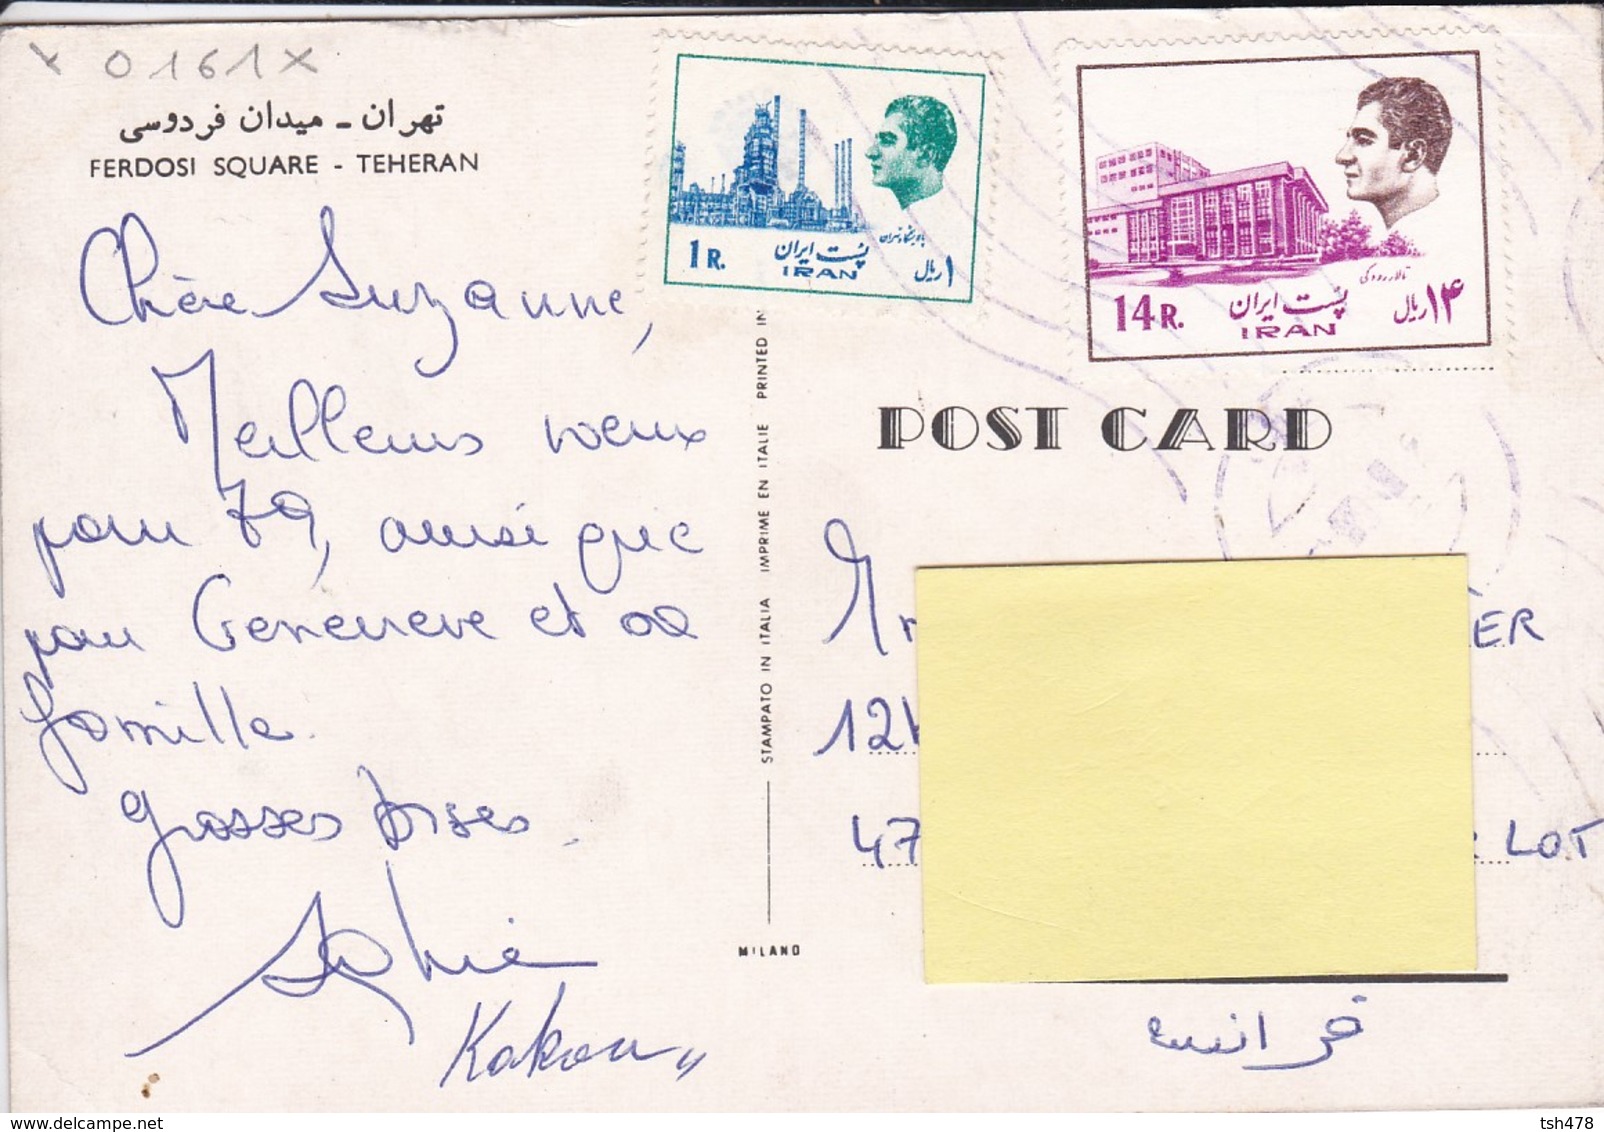 0161X
تهران - میدان فردوسی
FERDOSI SQUARE - TEHERAN
Chère Suzanne,
Meilleurs vœux
pour 79, ainsi que
pour Geneviève et sa
famille.
Grosses bises.
Sophie
Kakou
1 R.
پست ایران
IRAN
۱ ریال
14 R.
پست ایران
IRAN
۱۴ ریال
تالار رودکی
POST CARD
STAMPATO IN ITALIA IMPRIME EN ITALIE PRINTED IN
MILANO
ER
12
47
LOT
فرانسه
tsh478